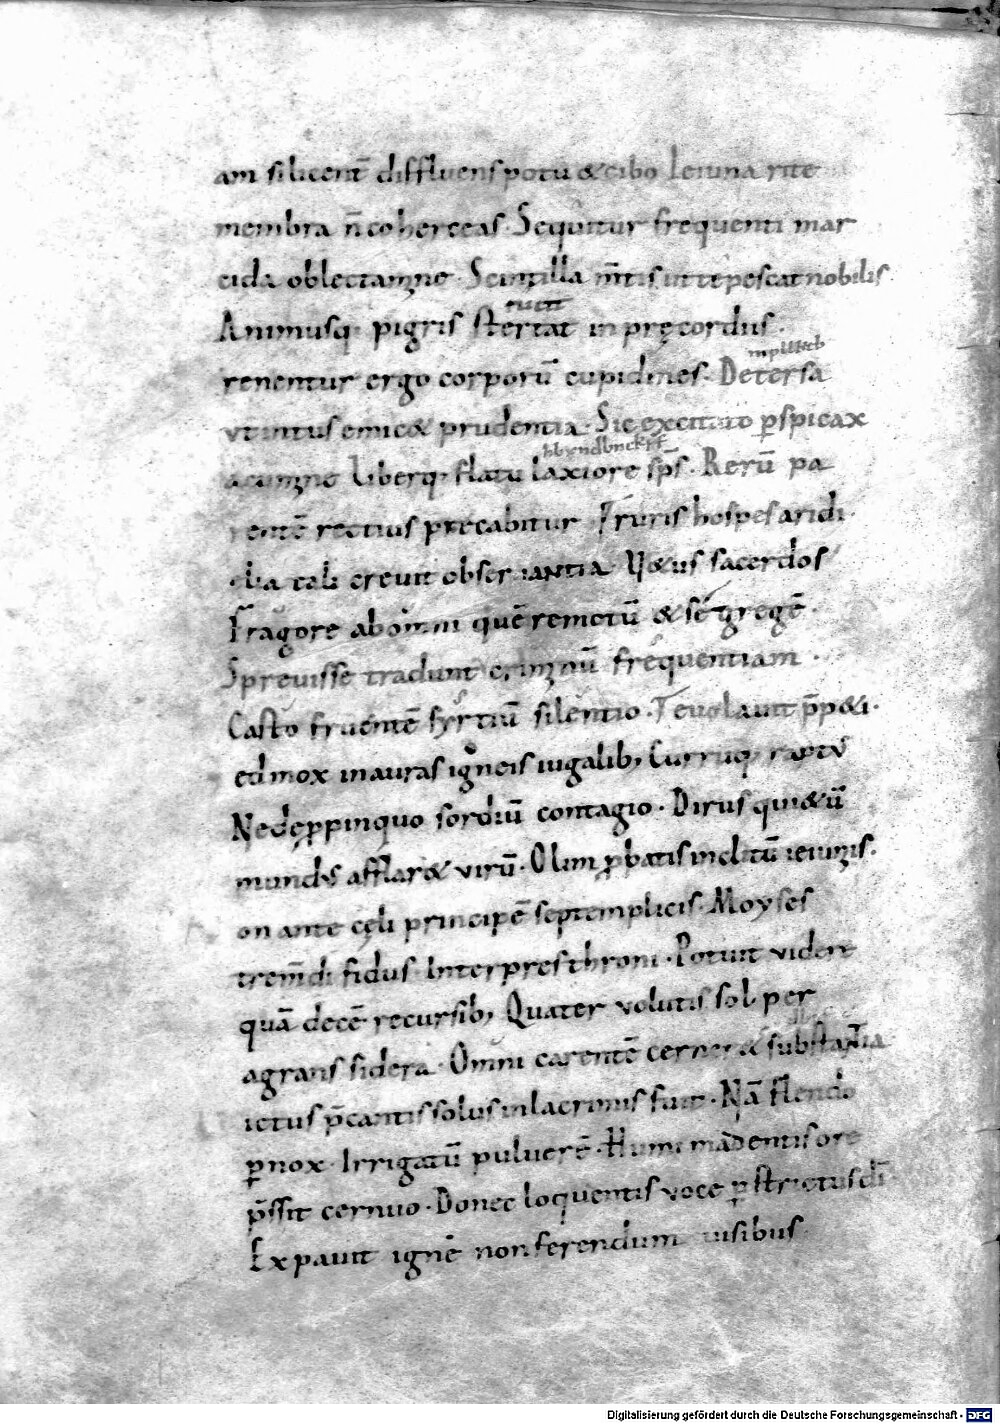 am si licent̄ diffluens potu & cibo Ieiuna rite
membra n̄ coherceas. Sequitur frequenti mar
cida oblectamine. Scintilla m̄tis ut tepescat nobilis
Animusq; pigris stertat in pręcordiis.
renentur ergo corporū cupidines. Detersa
ut intus emic& prudentia. Sic excitato ꝑspicax
acumine Liberq; flatu laxiore sp̄s. Rerū pa
rentē rectius precabitur
hospes aridi
lia tali crevit observantia. V&us sacerdos
Fragore ab omni quē remotū & segregē.
Sprevisse tradunt criminū frequentiam.
Casto fruentē syrtiū silentio. Tesu p̄p&i.
ed mox in auras igneis iugalib; Curruq; raptus
Ne de ꝓpinquo sordiū contagio. Dirus qui&ū
mundus afflar& virū. Olim ꝓbatis inclitū ieiuniis.
on ante cęli principē septemplicis. Moyses
trem̄di fidus Interpres throni. Potuit videre
quā decē recursib; Quater volutis sol per
agrans sidera. Omni carentē cerner& substantia
ictus p̄cantis solus in lacrimis fuit. Nā flendo
ꝑnox. Irrigatū pulverē. Humi madentis ore
p̄ssit cernuo. Donec loquentis voce ꝑstrictus dī
Expavit ignē non ferendum visibus.
Digitalisierung gefördert durch die Deutsche Forschungsgemeinschaft - DFG